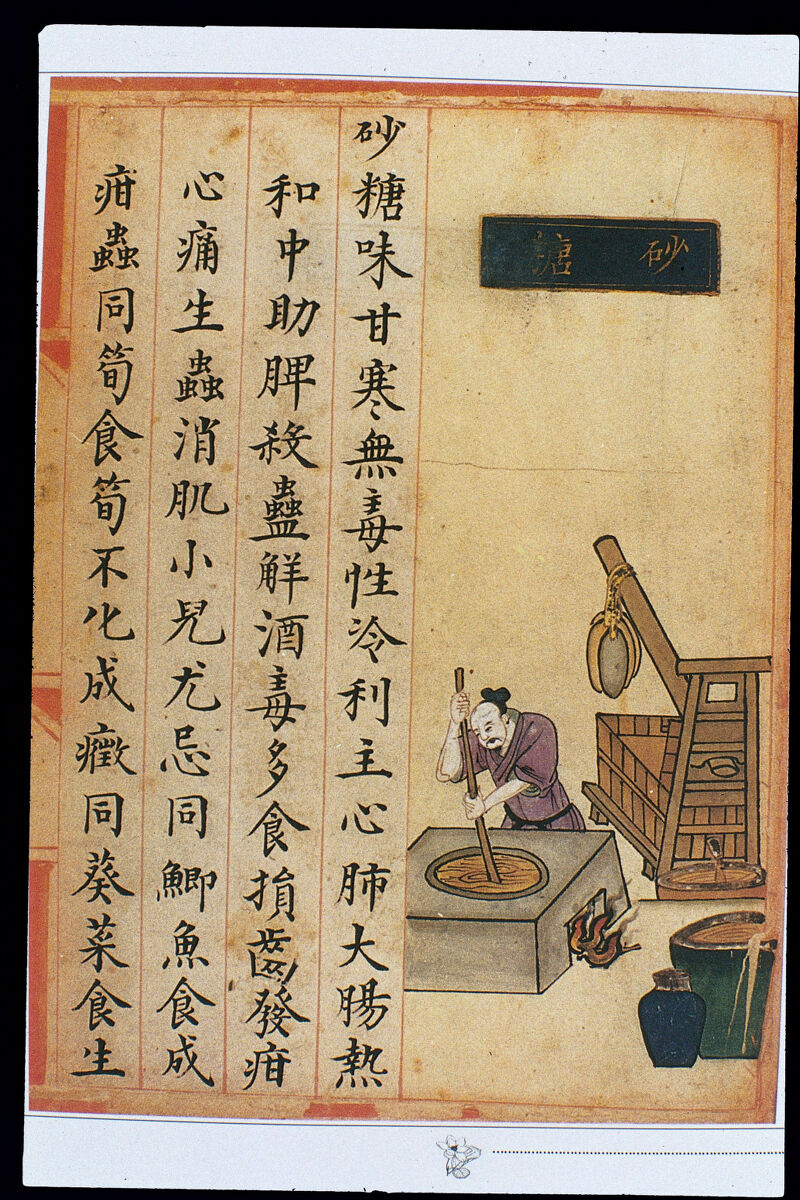 砂糖
砂糖味甘寒無毒性冷利主心肺大腸熱
和中助脾殺蠱解酒毒多食損齒發疳
心痛生蟲消肌小兒尤忌同鯽魚食成
疳蟲同筍食筍不化成癥同葵菜食生